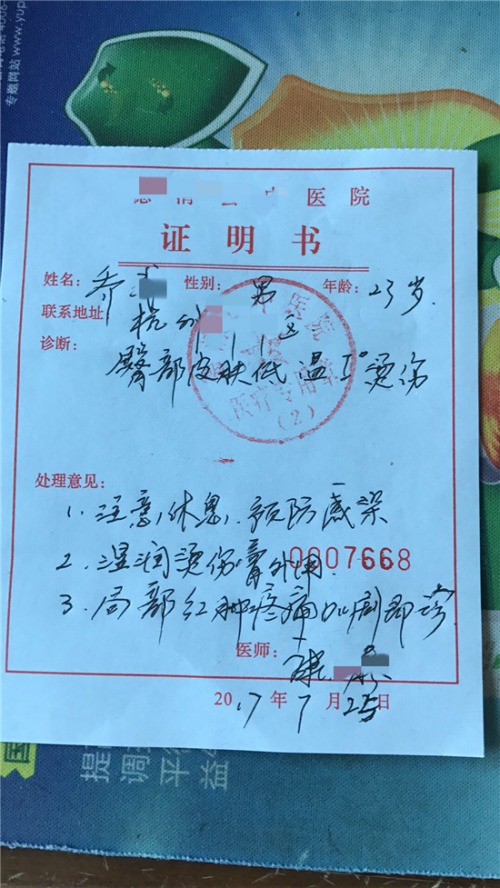 专题网站 www.yup
医院
证明书
姓名：乔 性别：男 年龄：23岁
联系地址：杭州 区
诊断：
臀部皮肤低温I°烫伤
医疗专用章
（2）
处理意见：
1. 注意休息，预防感染
2. 湿润烫伤膏外用
0007668
3. 局部红肿疼痛加剧即诊
医师：
2017年7月25日
国
提
调
平
益